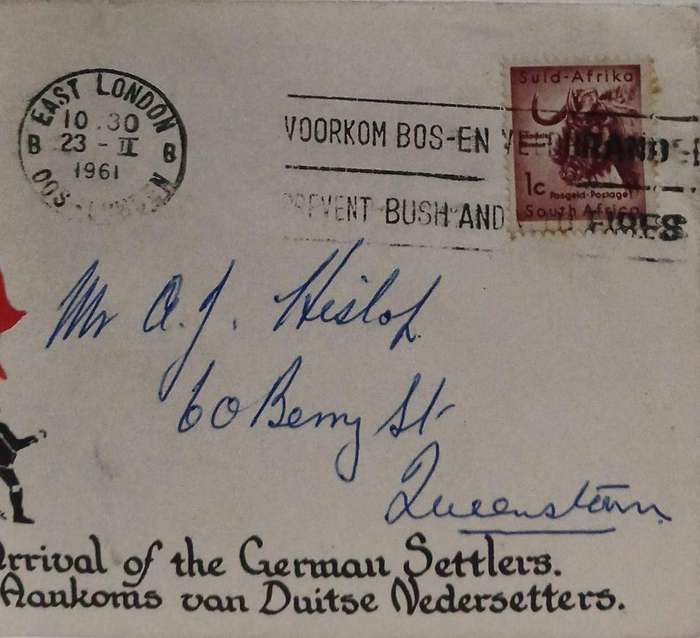 EAST LONDON
10.30
B 23 - II B
1961
OOS
VOORKOM BOS-EN
PREVENT BUSH AND FIRES
Suid-Afrika
1c
Posgeld-Postage
South Africa
Mr A. J. Hislop
60 Berry St
Queenstown
Arrival of the German Settlers.
Aankoms van Duitse Nedersetters.